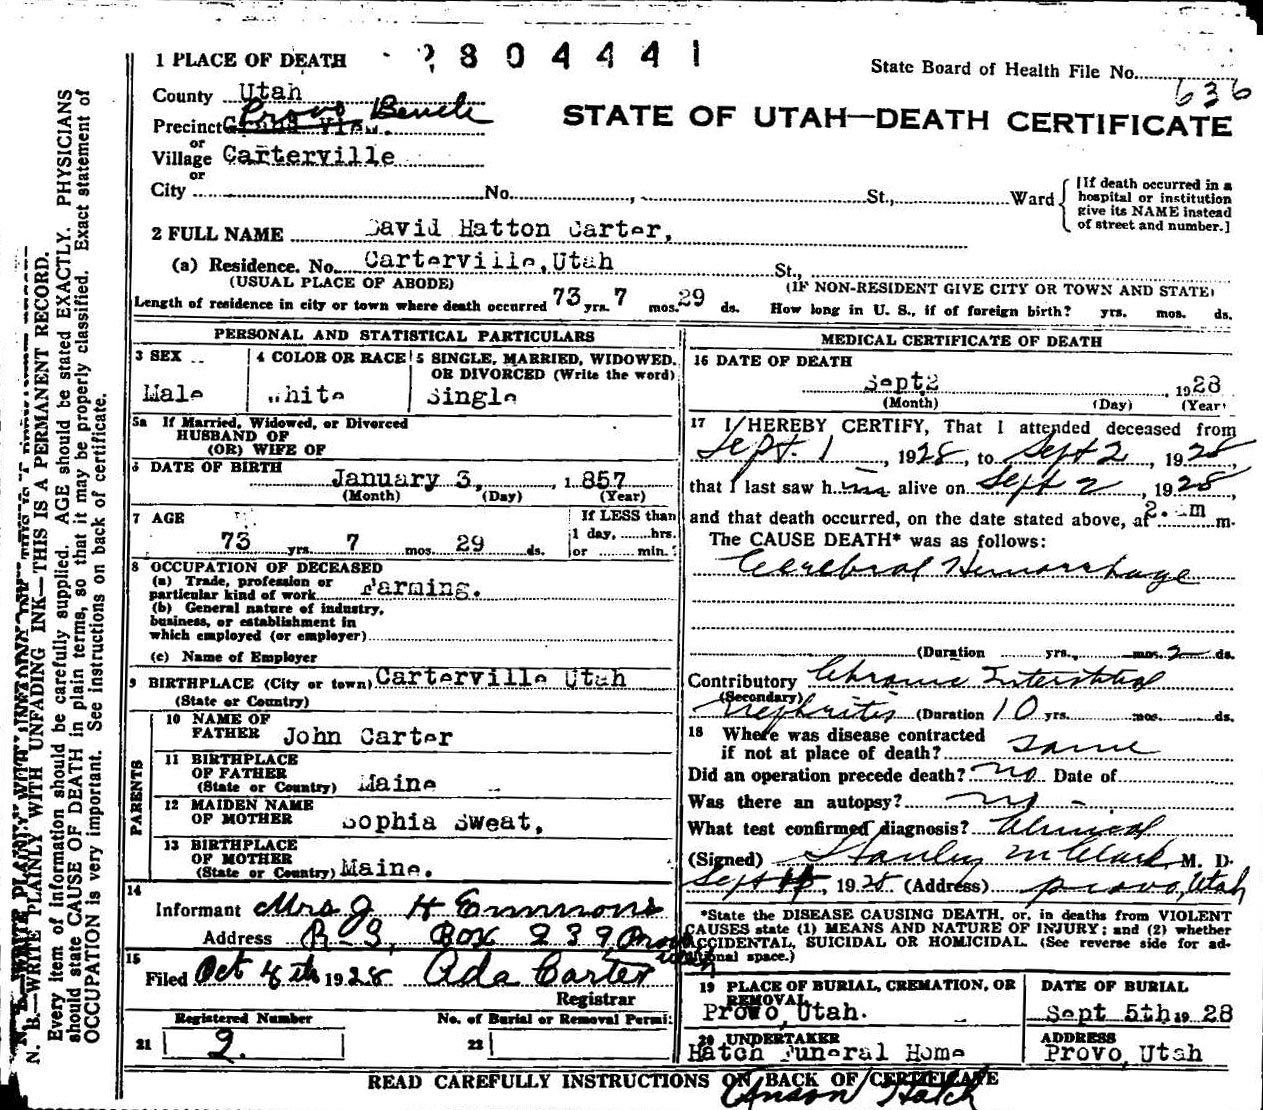 1 PLACE OF DEATH 2804441
State Board of Health File No. 636
County Utah
STATE OF UTAH—DEATH CERTIFICATE
Provo Bench
Precinct Grand View.
or
Village Carterville
or
City No. , St., Ward
[If death occurred in a
hospital or institution
give its NAME instead
of street and number.]
2 FULL NAME David Hatton Carter,
(a) Residence. No. Carterville, Utah St.,
(USUAL PLACE OF ABODE) (IF NON-RESIDENT GIVE CITY OR TOWN AND STATE)
Length of residence in city or town where death occurred 73 yrs. 7 mos. 29 ds. How long in U. S., if of foreign birth? yrs. mos. ds.
PERSONAL AND STATISTICAL PARTICULARS
3 SEX
Male
4 COLOR OR RACE
White
5 SINGLE, MARRIED, WIDOWED.
OR DIVORCED (Write the word)
Single
5a If Married, Widowed, or Divorced
HUSBAND OF
(OR) WIFE OF
6 DATE OF BIRTH
January 3, , 1 857
(Month) (Day) (Year)
7 AGE
73 yrs. 7 mos. 29 ds.
If LESS than
1 day, hrs.
or min.
8 OCCUPATION OF DECEASED
(a) Trade, profession or
particular kind of work Farming.
(b) General nature of industry,
business, or establishment in
which employed (or employer)
(c) Name of Employer
9 BIRTHPLACE (City or town) Carterville Utah
(State or Country)
PARENTS
10 NAME OF
FATHER John Carter
11 BIRTHPLACE
OF FATHER
(State or Country) Maine
12 MAIDEN NAME
OF MOTHER Sophia Sweat,
13 BIRTHPLACE
OF MOTHER
(State or Country) Maine.
14
Informant Mrs J H Emmons
Address R-3, Box 239 Provo Utah
15
Filed Oct 4th 1928 Ada Carter
Registrar
Registered Number
21 2.
No. of Burial or Removal Permit
22
MEDICAL CERTIFICATE OF DEATH
16 DATE OF DEATH
Sept 2 , 1928
(Month) (Day) (Year)
17 I HEREBY CERTIFY, That I attended deceased from
Sept. 1 , 1928, to Sept 2 , 1928,
that I last saw him alive on Sept 2 , 1928,
and that death occurred, on the date stated above, at 2. m m.
The CAUSE DEATH* was as follows:
Cerebral Hemorrhage
(Duration yrs., mos. 2 ds.
Contributory Chronic Interstitial
(Secondary)
Nephritis (Duration 10 yrs. mos. ds.
18 Where was disease contracted
if not at place of death? Same
Did an operation precede death? no Date of
Was there an autopsy? no -
What test confirmed diagnosis? Clinical
(Signed) Stanley M Clark M. D.
Sept , 1928 (Address) Provo, Utah
*State the DISEASE CAUSING DEATH, or, in deaths from VIOLENT
CAUSES state (1) MEANS AND NATURE OF INJURY; and (2) whether
ACCIDENTAL, SUICIDAL OR HOMICIDAL. (See reverse side for ad-
ditional space.)
19 PLACE OF BURIAL, CREMATION, OR
REMOVAL
Provo, Utah.
DATE OF BURIAL
Sept 5th 19 28
20 UNDERTAKER
Hatch Funeral Home
ADDRESS
Provo, Utah
READ CAREFULLY INSTRUCTIONS ON BACK OF CERTIFICATE
Anson Hatch
N. B.—WRITE PLAINLY WITH UNFADING INK—THIS IS A PERMANENT RECORD.
Every item of information should be carefully supplied. AGE should be stated EXACTLY. PHYSICIANS
should state CAUSE OF DEATH in plain terms, so that it may be properly classified. Exact statement of
OCCUPATION is very important. See instructions on back of certificate.